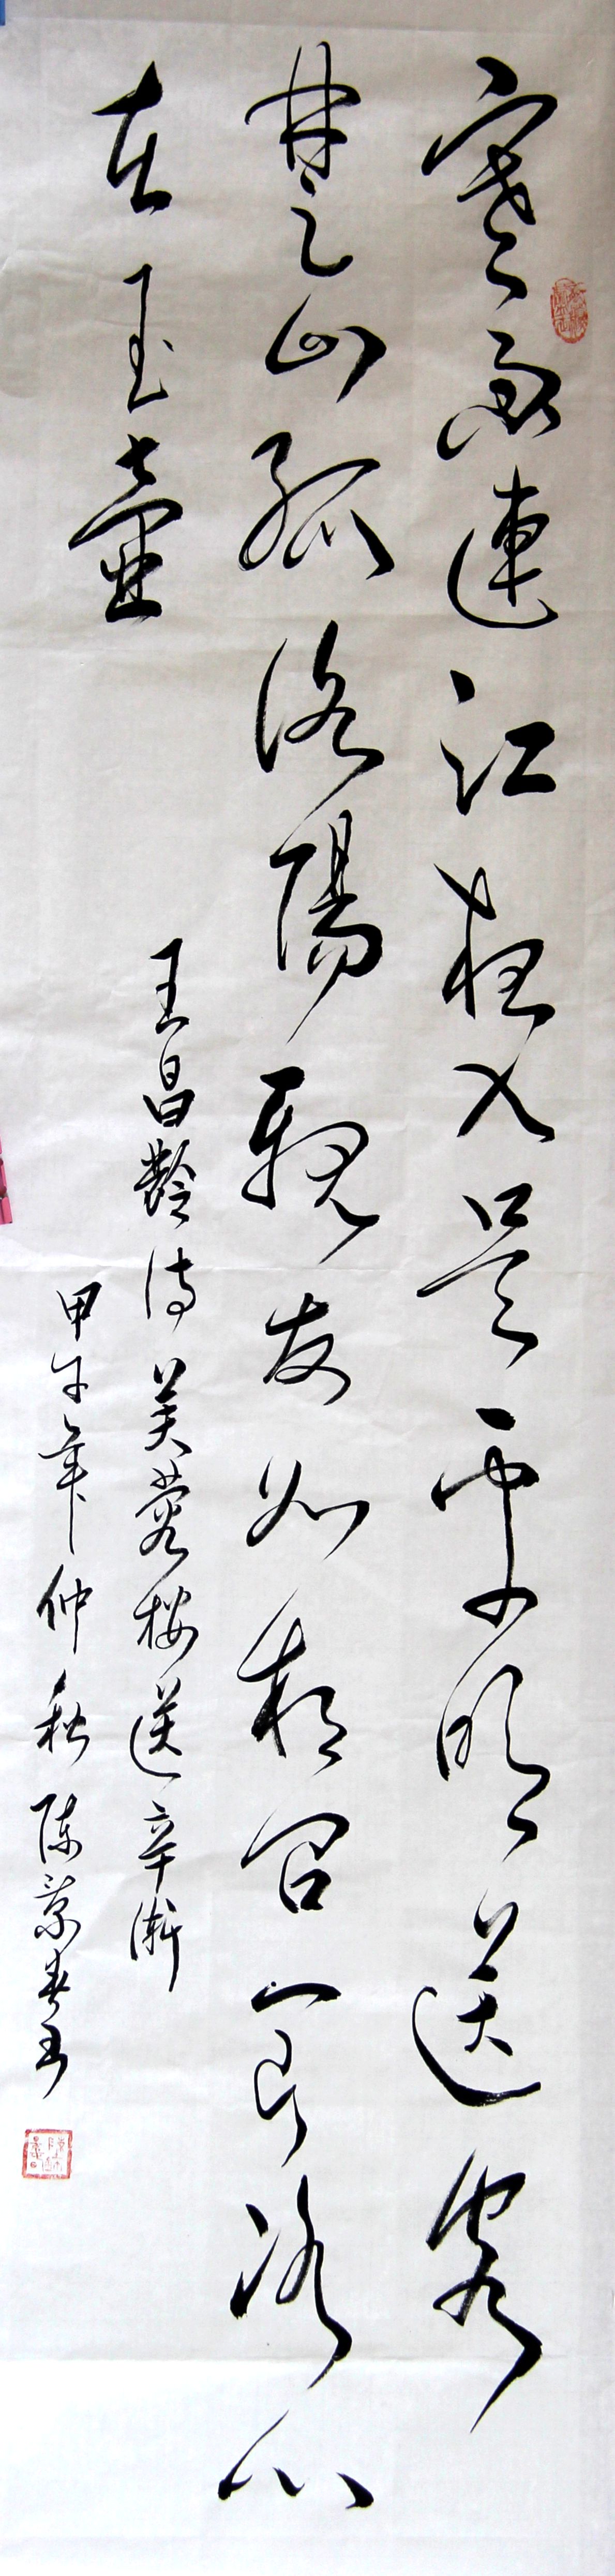 寒雨連江夜入吳平明送客
楚山孤洛陽親友如相問一片冰心
在玉壺
王昌齡诗芙蓉楼送辛渐
甲午年仲秋陈景春书